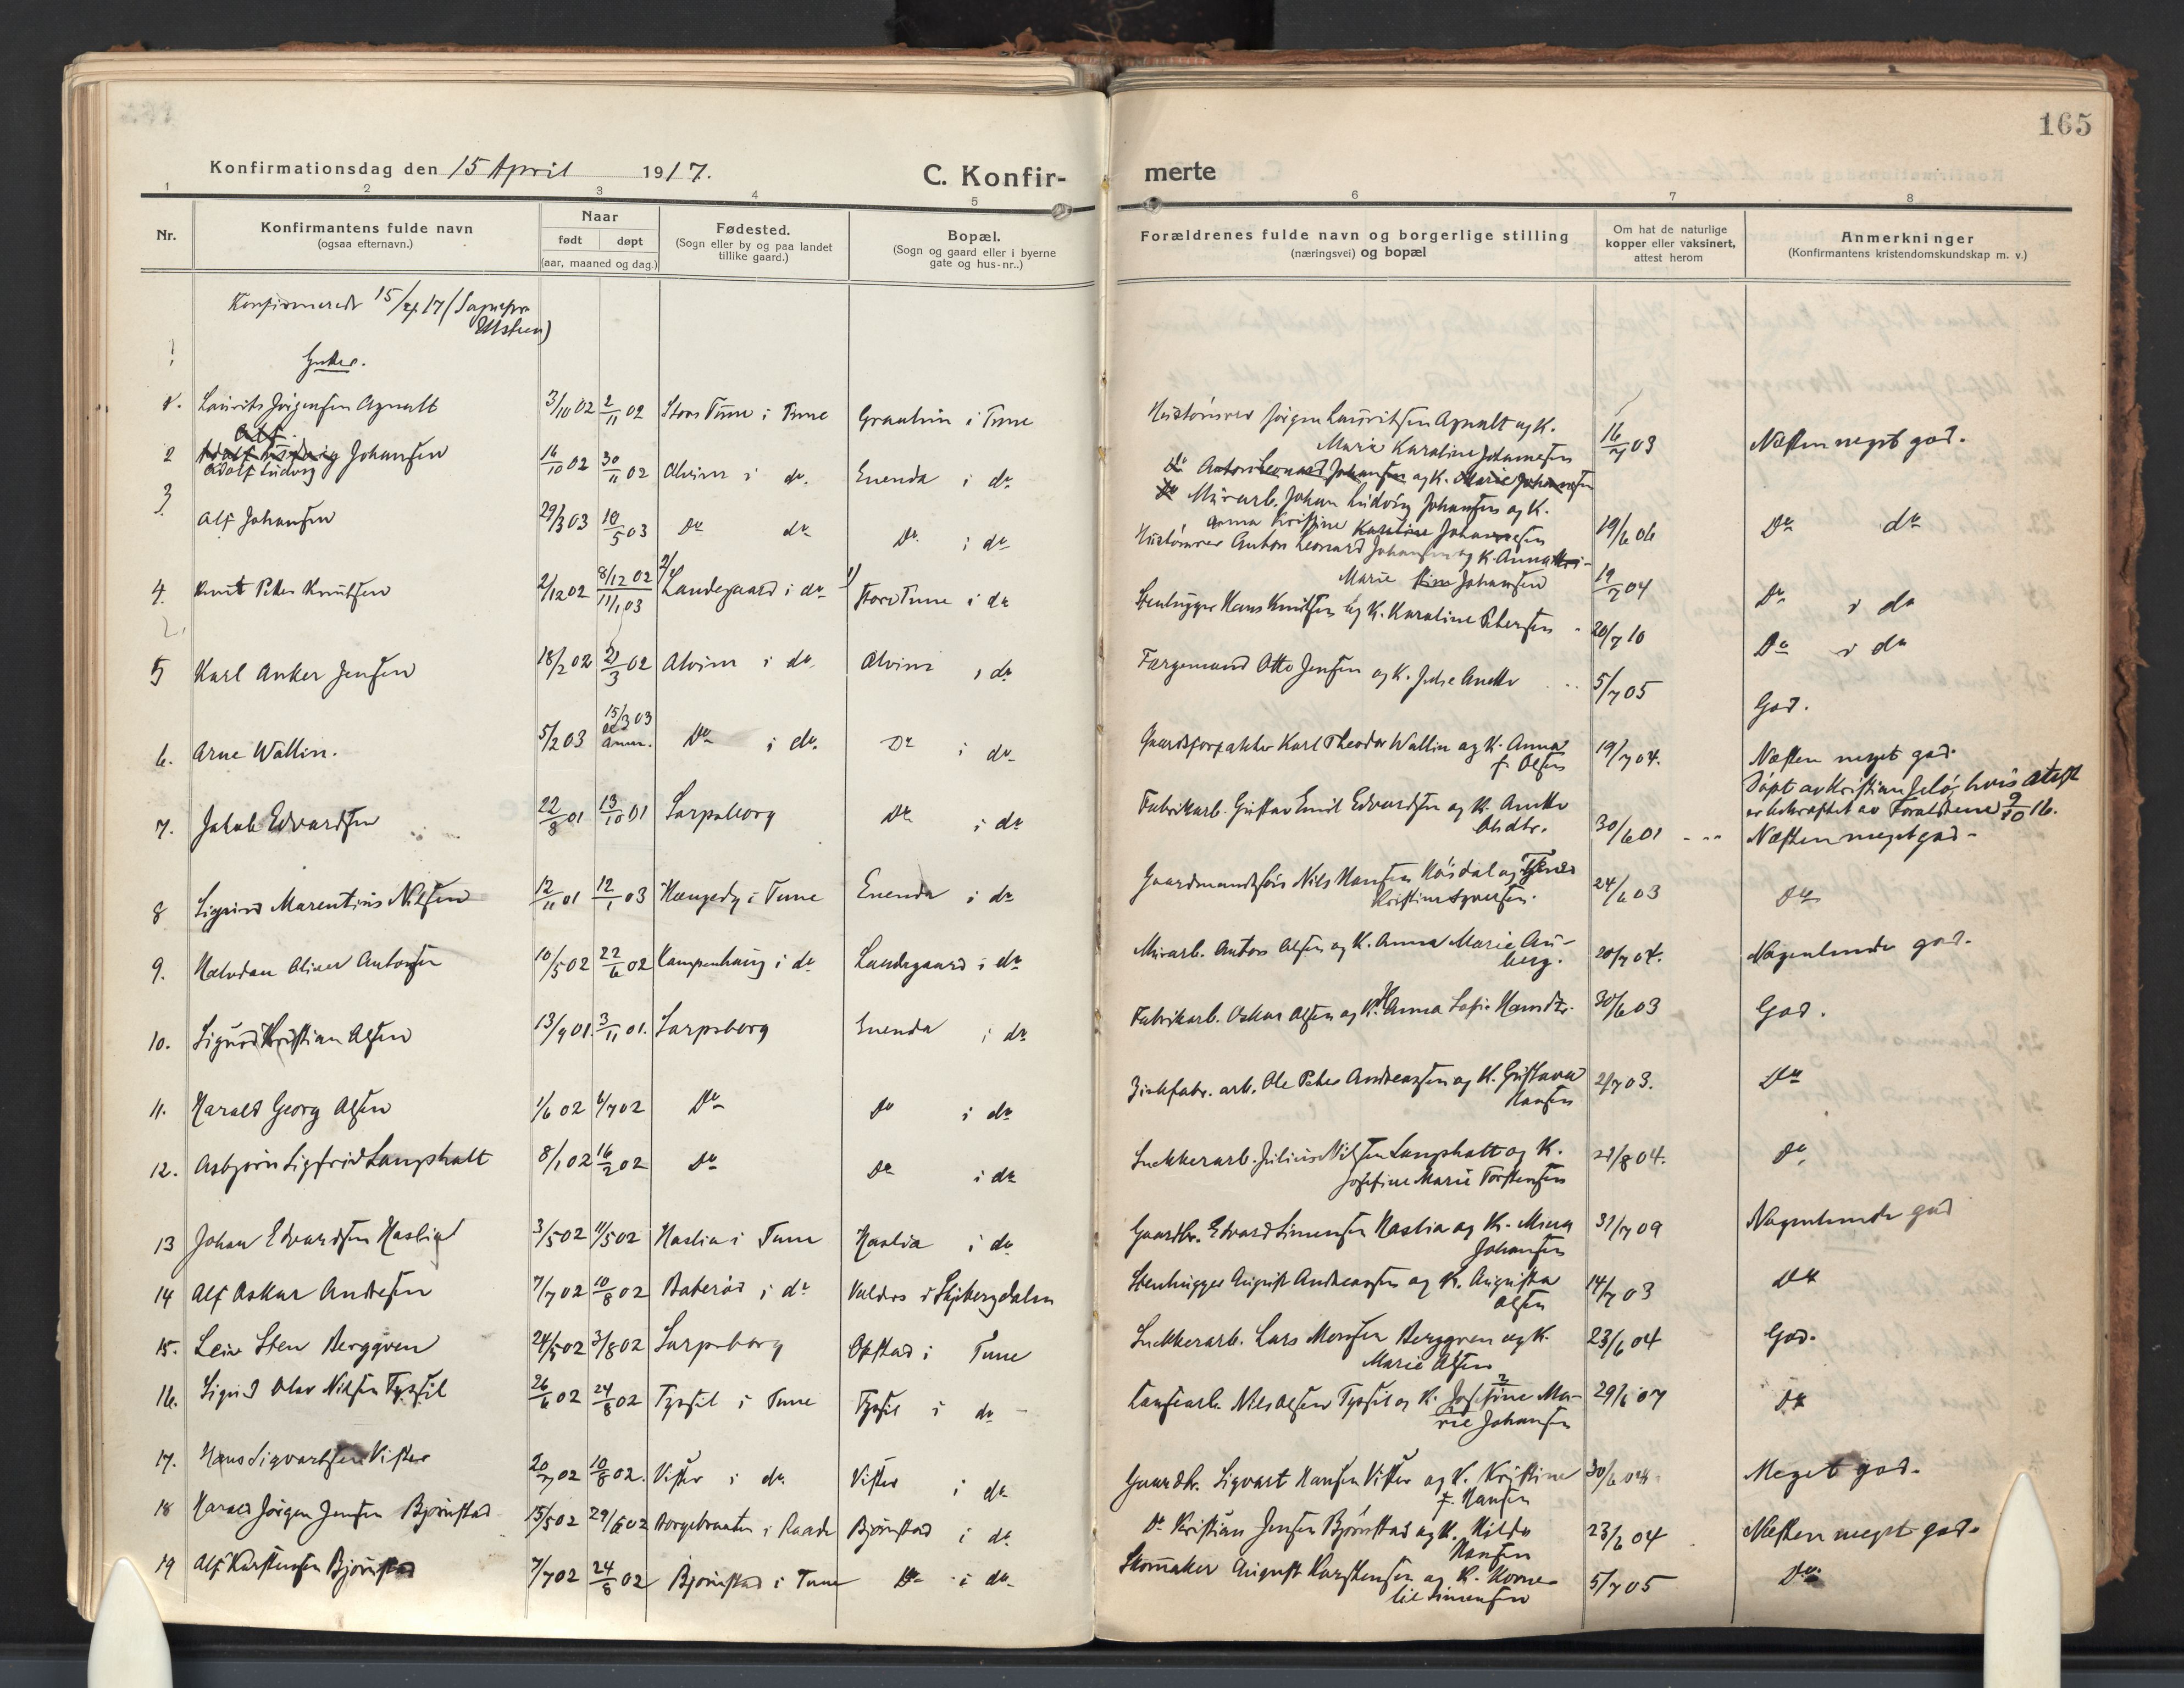 165
Konfirmationsdag den 15 April 1917.
C. Konfir-
merte
1 2 3 4 5 6 7 8
Nr.
Konfirmantens fulde navn
(ogsaa efternavn.)
Naar
født døpt
(aar, maaned og dag.)
Fødested.
(Sogn eller by og paa landet
tillike gaard.)
Bopæl.
(Sogn og gaard eller i byerne
gate og hus-nr..)
Forældrenes fulde navn og borgerlige stilling
(næringsvei) og bopæl
Om hat de naturlige
kopper eller vaksinert,
attest herom
Anmerkninger
(Konfirmantens kristendomskundskap m. v.)
Konfirmerede 15/4 17 (Sognepr.
Gutter.
1. Laurits Jørgensen Agnalt 3/10 02 2/11 02 Store Tune i Tune Graatun i Tune Jørgen Lauritsen Agnalt og K. 16/7 03 Næsten meget god.
Marie Karoline Johannesen
Alf
2 Adolf Ludvig Johansen 16/10 02 30/11 02 Alvim i do. Enenda i do
Adolf Ludvig
do Anton Leonard Johansen og K. Marie Johansen
Do Murarb. Johan Ludvig Johansen og K. 19/6 06 Do do
Anna Kristine Karoline Johannesen
3 Alf Johansen 29/3 03 10/5 03 Do do Do i do Anton Leonard Johansen og K. Anna Kri- 19/7 04 Do i do
Marie stine Johansen
4. Knut Peter Knutsen 2/12 02 8/12 02 11/1 03 Landegaard i do Store Tune i do Stenhugger Hans Knutsen og K. Karoline Petersen 20/7 10 Do i do
5 Karl Anker Jensen 18/2 02 21/3 02 Alvim i do Alvim i do Færgemand Otto Jensen og K. 5/7 05 God.
6. Arne Wallin. 5/2 03 15/3 03 Do i do. Do i do Gaardsforpakter Karl Theodor Wallin og K. Anna 19/7 04. Næsten meget god.
f. Olsen
Døpt av Kristian Jelø, hvis attest
er bekræftet av Forældrene 9/10 16.
7. Jakob Edvardsen 22/8 01 13/10 01 Sarpsborg Do i do Fabrikarb. Gustav Emil Edvardsen og K. 30/6 01 Næsten meget god
8 Sigurd Marentius Nilsen 12/11 01 12/1 03 i Tune Enenda i do Nils Hansen og 24/6 03 Do
9. Halvdan Oliver Antonsen 10/5 02 22/6 02 Kampenhaug i do Landegaard i do Murarb. Anton Olsen og K. Anna Marie Au- 20/7 04. Nogenlunde god.
berg.
10. Sigurd Kristian Olsen 13/9 01 3/11 01. Sarpsborg Enenda i do Fabrikarb. Oskar Olsen og K. Hanna Sofie 30/6 03 God.
11. Harald Georg Olsen 1/6 02 6/7 02 Do Do i do arb. Ole Peter Andreassen og K. Gustava 2/7 03. Do
Hansen
12. Asbjørn Sigfrid Langholt 8/1 02 16/2 02 Do Do i do Julius Nilsen Langholt og K. 21/8 04. Do
Josefine Marie Torstensen
13 Johan Edvardsen Haslia 3/5 02 11/5 02 Haslia i Tune Haslia i do Gaardbr. Edvard Simensen Haslia og K. Mina 31/7 09 Nogenlunde god
Johansen
14 Alf Oskar Andresen 7/7 02 10/8 02 Baterød i do i Skjebergdalen Stenhugger August Andreassen og K. Augusta 14/7 03 Do
Olsen
15. Leiv Sten Berggren 24/5 02 3/8 02 Sarpsborg Opstad i Tune Lars Monsen Berggren og K. 23/6 04 God.
Marie Olsen
16. Sigurd Olav Nilsen Typsil 26/6 02 24/8 02 Typsil i Tune Typsil i do Nils Olsen Typsil og K. Josefine Ma- 29/6 07 Do
rie Johansen
17. Hans Sigvartsen Vister 20/7 02 10/8 02. Vister i do Vister i do Gaardbr. Sigvart Hansen Vister og K. Kristine 30/6 04 Meget god.
f. Hansen
18 Harald Jørgen Jensen Bjørnstad 15/5 02 29/6 02 Borgebraaten i Raade Bjørnstad i do. Do Kristian Jensen Bjørnstad og K. Hilda 23/6 04 Næsten meget god.
Hansen
19 Alf Karstensen Bjørnstad 7/7 02 24/8 02 Bjørnstad i Tune Do i do Skomaker August Karstensen og K. Korne- 5/7 05 Do.
lie Simensen